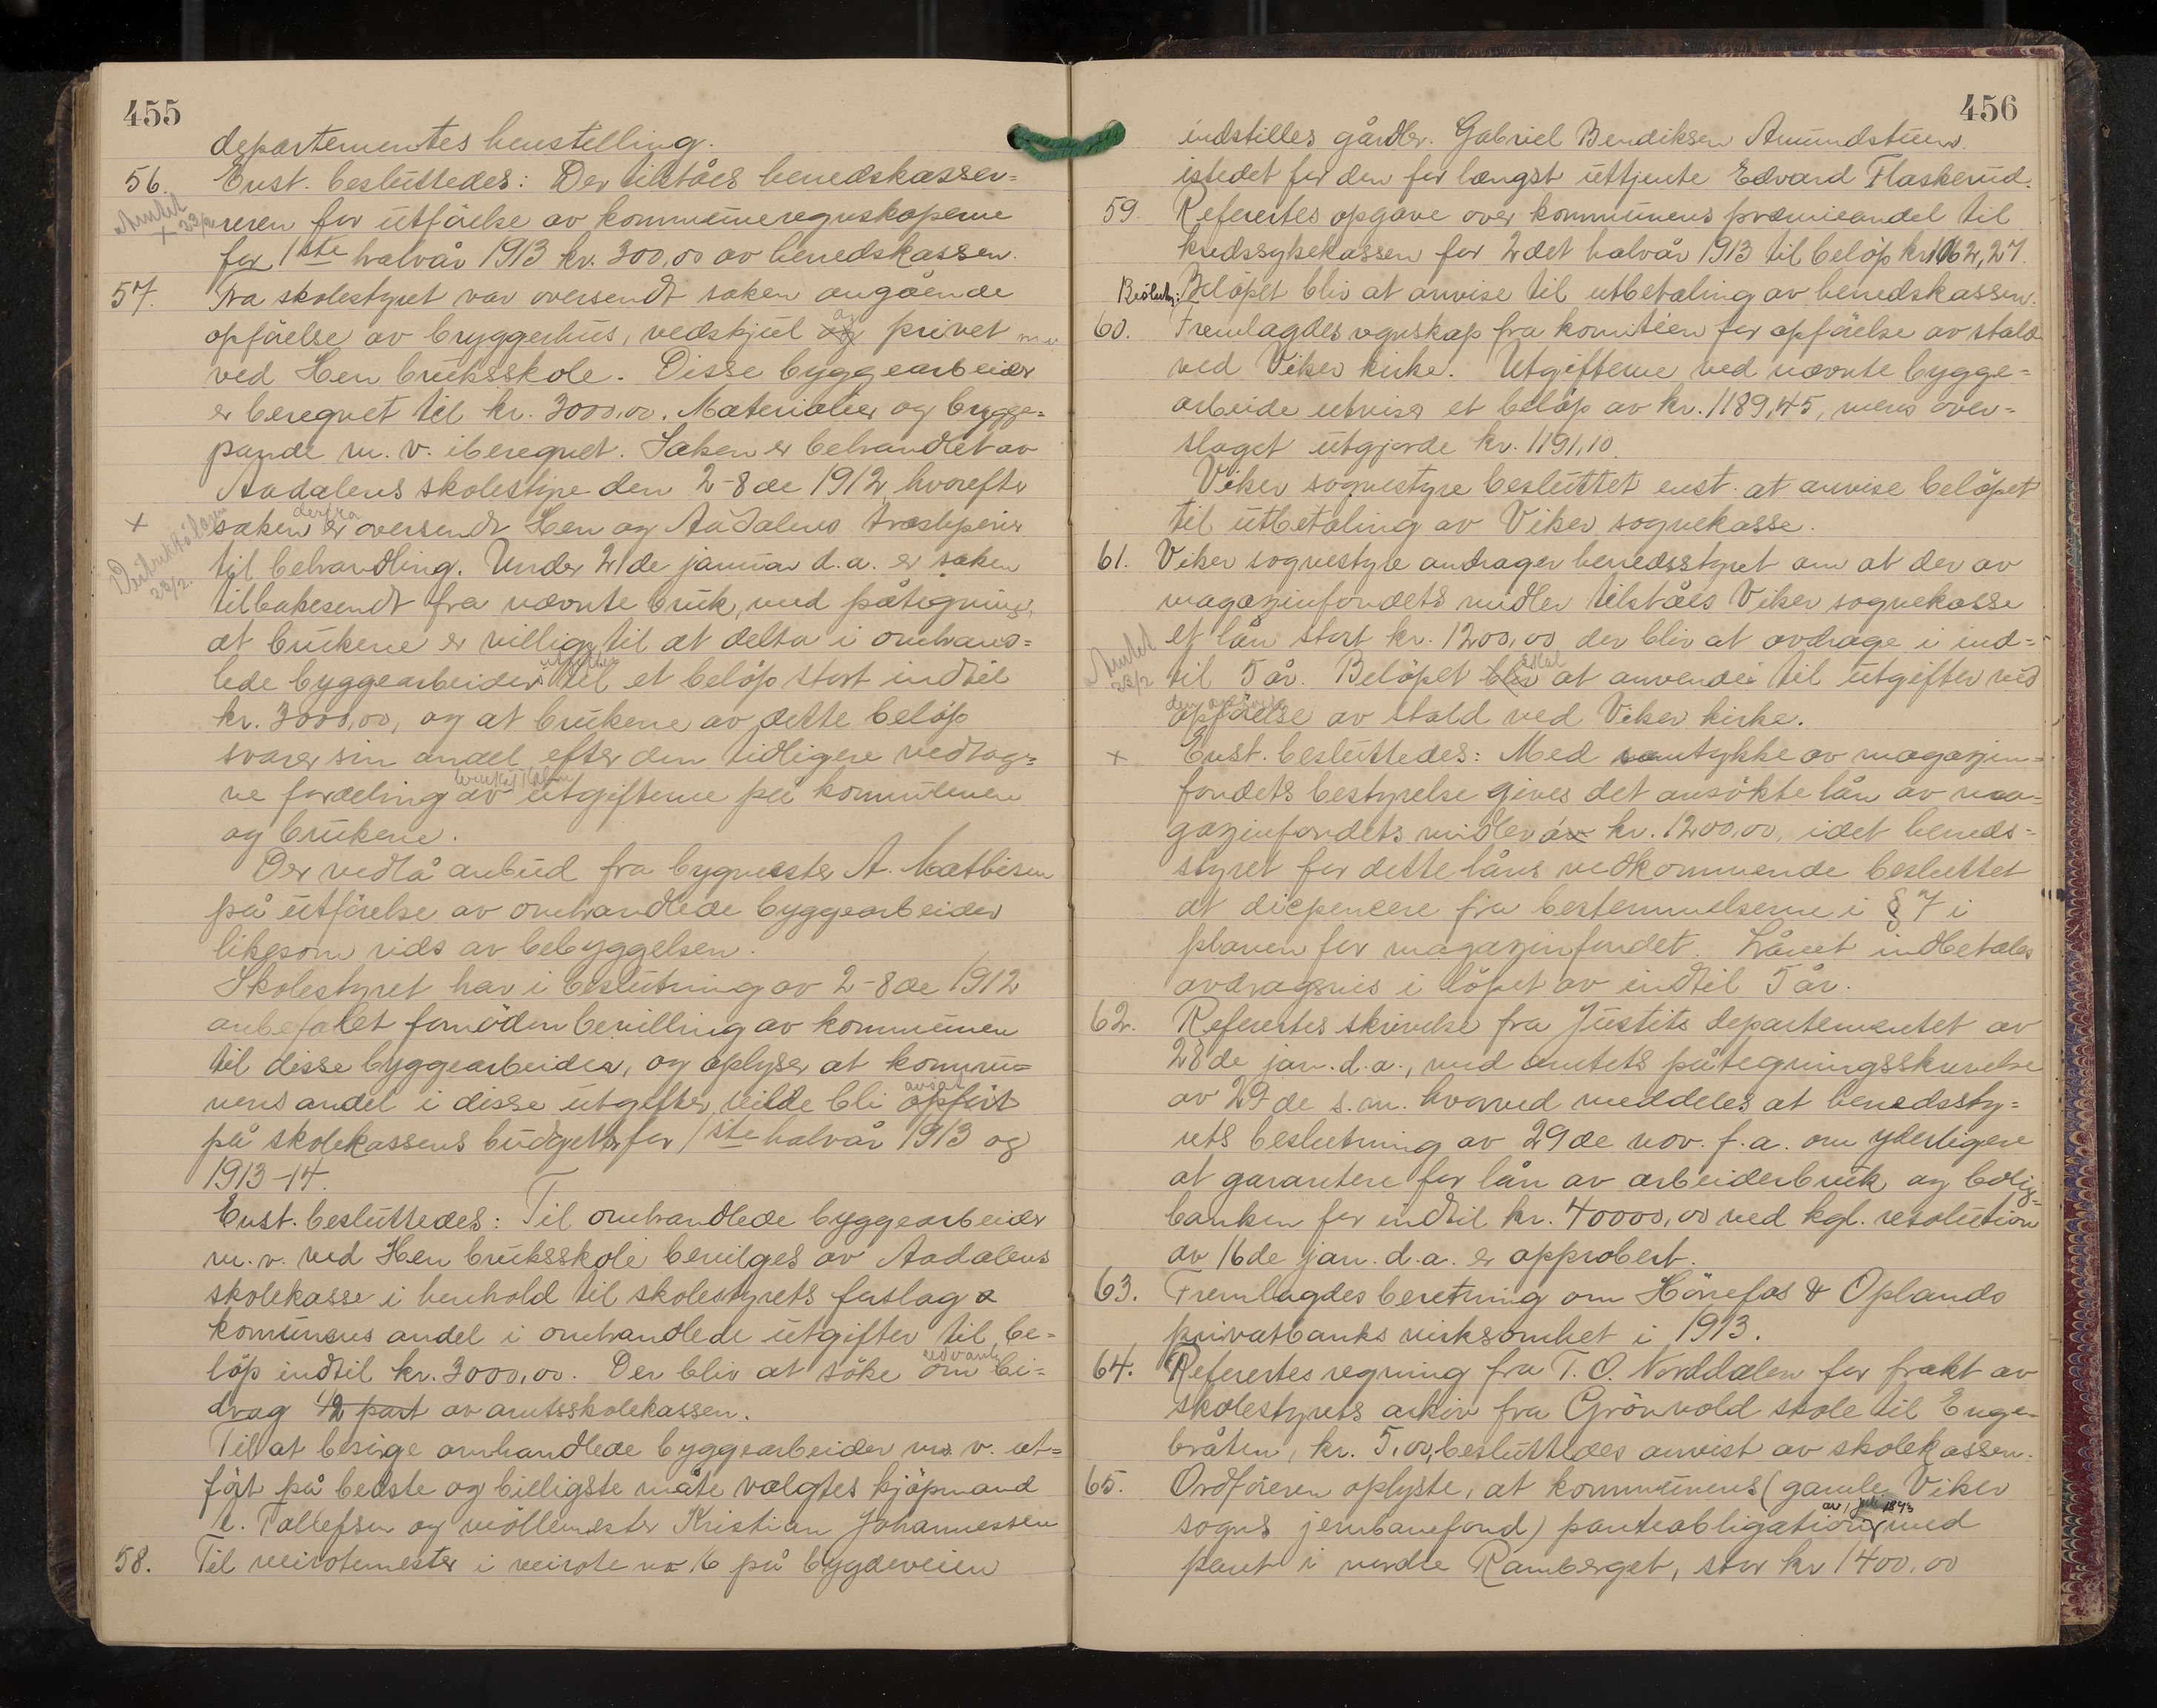 455
departementes henstilling.
56. Enst. besluttedes: Der tilståes herredskasser=
Amtet
x 23/2
reren for utførelse av kommuneregnskaperne
for 1ste halvår 1913 kr. 300,00 av herredskassen.
57. Fra skolestyret var oversendt saken angående
opførelse av bryggerhus, vedskjul og privet m.v.
ved Hen bruksskole. Disse byggearbeider
er beregnet til kr. 3000,00. Materialier og brygge=
pande m. v. iberegnet. Saken er behandlet av
Aadalens skolestyre den 2-8de 1912 hvorefter
x saken derfra er oversendt Hen og Aadalens træsliperier
23/2.
til behandling. Under 21de januar d.a. er saken
tilbakesendt fra nævnte bruk, med påtegning,
at brukene er villig til at delta i omhand=
lede byggearbeiders utgifter til et beløp stort indtil
kr. 3000,00, og at brukene av dette beløp
svarer sin andel efter den tidligere vedtag=
ne fordeling av utgifterne på kommunen
og brukene.
Der vedlå anbud fra bygmester A. Mathisen
på utførelse av omhandlede byggearbeider
likesom rids av bebyggelsen.
Skolestyret har i beslutning av 2-8de 1912
anbefalet fornøden bevilling av kommunen
til disse byggearbeider, og oplyser at kommu=
nens andel i disse utgifter vilde bli avsat opført
på skolekassens budgetter for 1ste halvår 1913 og
1913-14.
Enst. besluttedes: Til omhandlede byggearbeider
m.v. ved Hen bruksskole bevilges av Aadalens
skolekasse i henhold til skolestyrets forslag
kommunens andel i omhandlede utgifter til be=
løp indtil kr. 3000,00. Der blir at søke om bi=
drag 1/2 part av amtsskolekassen.
Til at besørge omhandlede byggearbeider m. v. ut=
ført på bedste og billigste måte valgtes kjøpmand
L. Tollefsen og møllemester Kristian Johannessen
58. Til veirotemester i veirote no 16 på bygdeveien
456
indstilles gårdbr. Gabriel Bendiksen Amundstuen
istedet for den for længst uttjente Edvard Flaskerud.
59. Referertes opgave over kommunens præmieandel til
kredssykekassen for 2det halvår 1913 til beløp kr 1062,27.
Beslutn: Beløpet blir at anvise til utbetaling av herredskassen.
60. Fremlagdes regnskap fra komitéen for opførelse av stald
ved Viker kirke. Utgifterne ved nævnte bygge=
arbeide utviser et beløp av kr. 1189,45, mens over=
slaget utgjorde kr. 1191,10.
Viker sognestyre besluttet enst. at anvise beløpet
til utbetaling av Viker sognekasse.
61. Viker sognestyre andrager herredsstyret om at der av
magazinfondets midler tilståes Viker sognekasse
et lån stort kr. 1200,00 der blir at avdrage i ind=
Amtet
23/2
til 5 år. Beløpet blir skal at anvendes til utgifter ved
den opførte
opførelse av stald ved Viker kirke.
x Enst. besluttedes: Med samtykke av magazin=
fondets bestyrelse gives det ansøkte lån av ma=
gazinfondets midler av kr. 1200,00, idet herreds=
styret for dette låns vedkommende besluttet
at dispencere fra bestemmelserne i § 7 i
planen for magazinfondet. Lånet indbetales
avdragsvis i løpet av indtil 5 år.
62. Referertes skrivelse fra Justits departementet av
28de jan. d.a., med amtets påtegningsskrivelse
av 29de s.m. hvorved meddeles at herredssty=
rets beslutning av 29de nov. f.a. om yderligere
at garantere for lån av arbeiderbruk og bolig=
banken for indtil kr. 40000,00 ved kgl. resolution
av 16de jan. d.a. er approbert.
63. Fremlagdes beretning om Hønefos & Oplands
privatbanks virksomhet i 1913.
64. Referertes regning fra T. O. Norddalen for frakt av
skolestyrets arkiv fra Grönvold skole til Enge=
bråten, kr. 5,00, besluttedes anvist av skolekassen.
65. Ordføreren oplyste, at kommunens (gamle Viker
sogns jernbanefond) panteobligation av 1 juli 1893 med
pant i nordre Ramberget, stor kr 1400,00